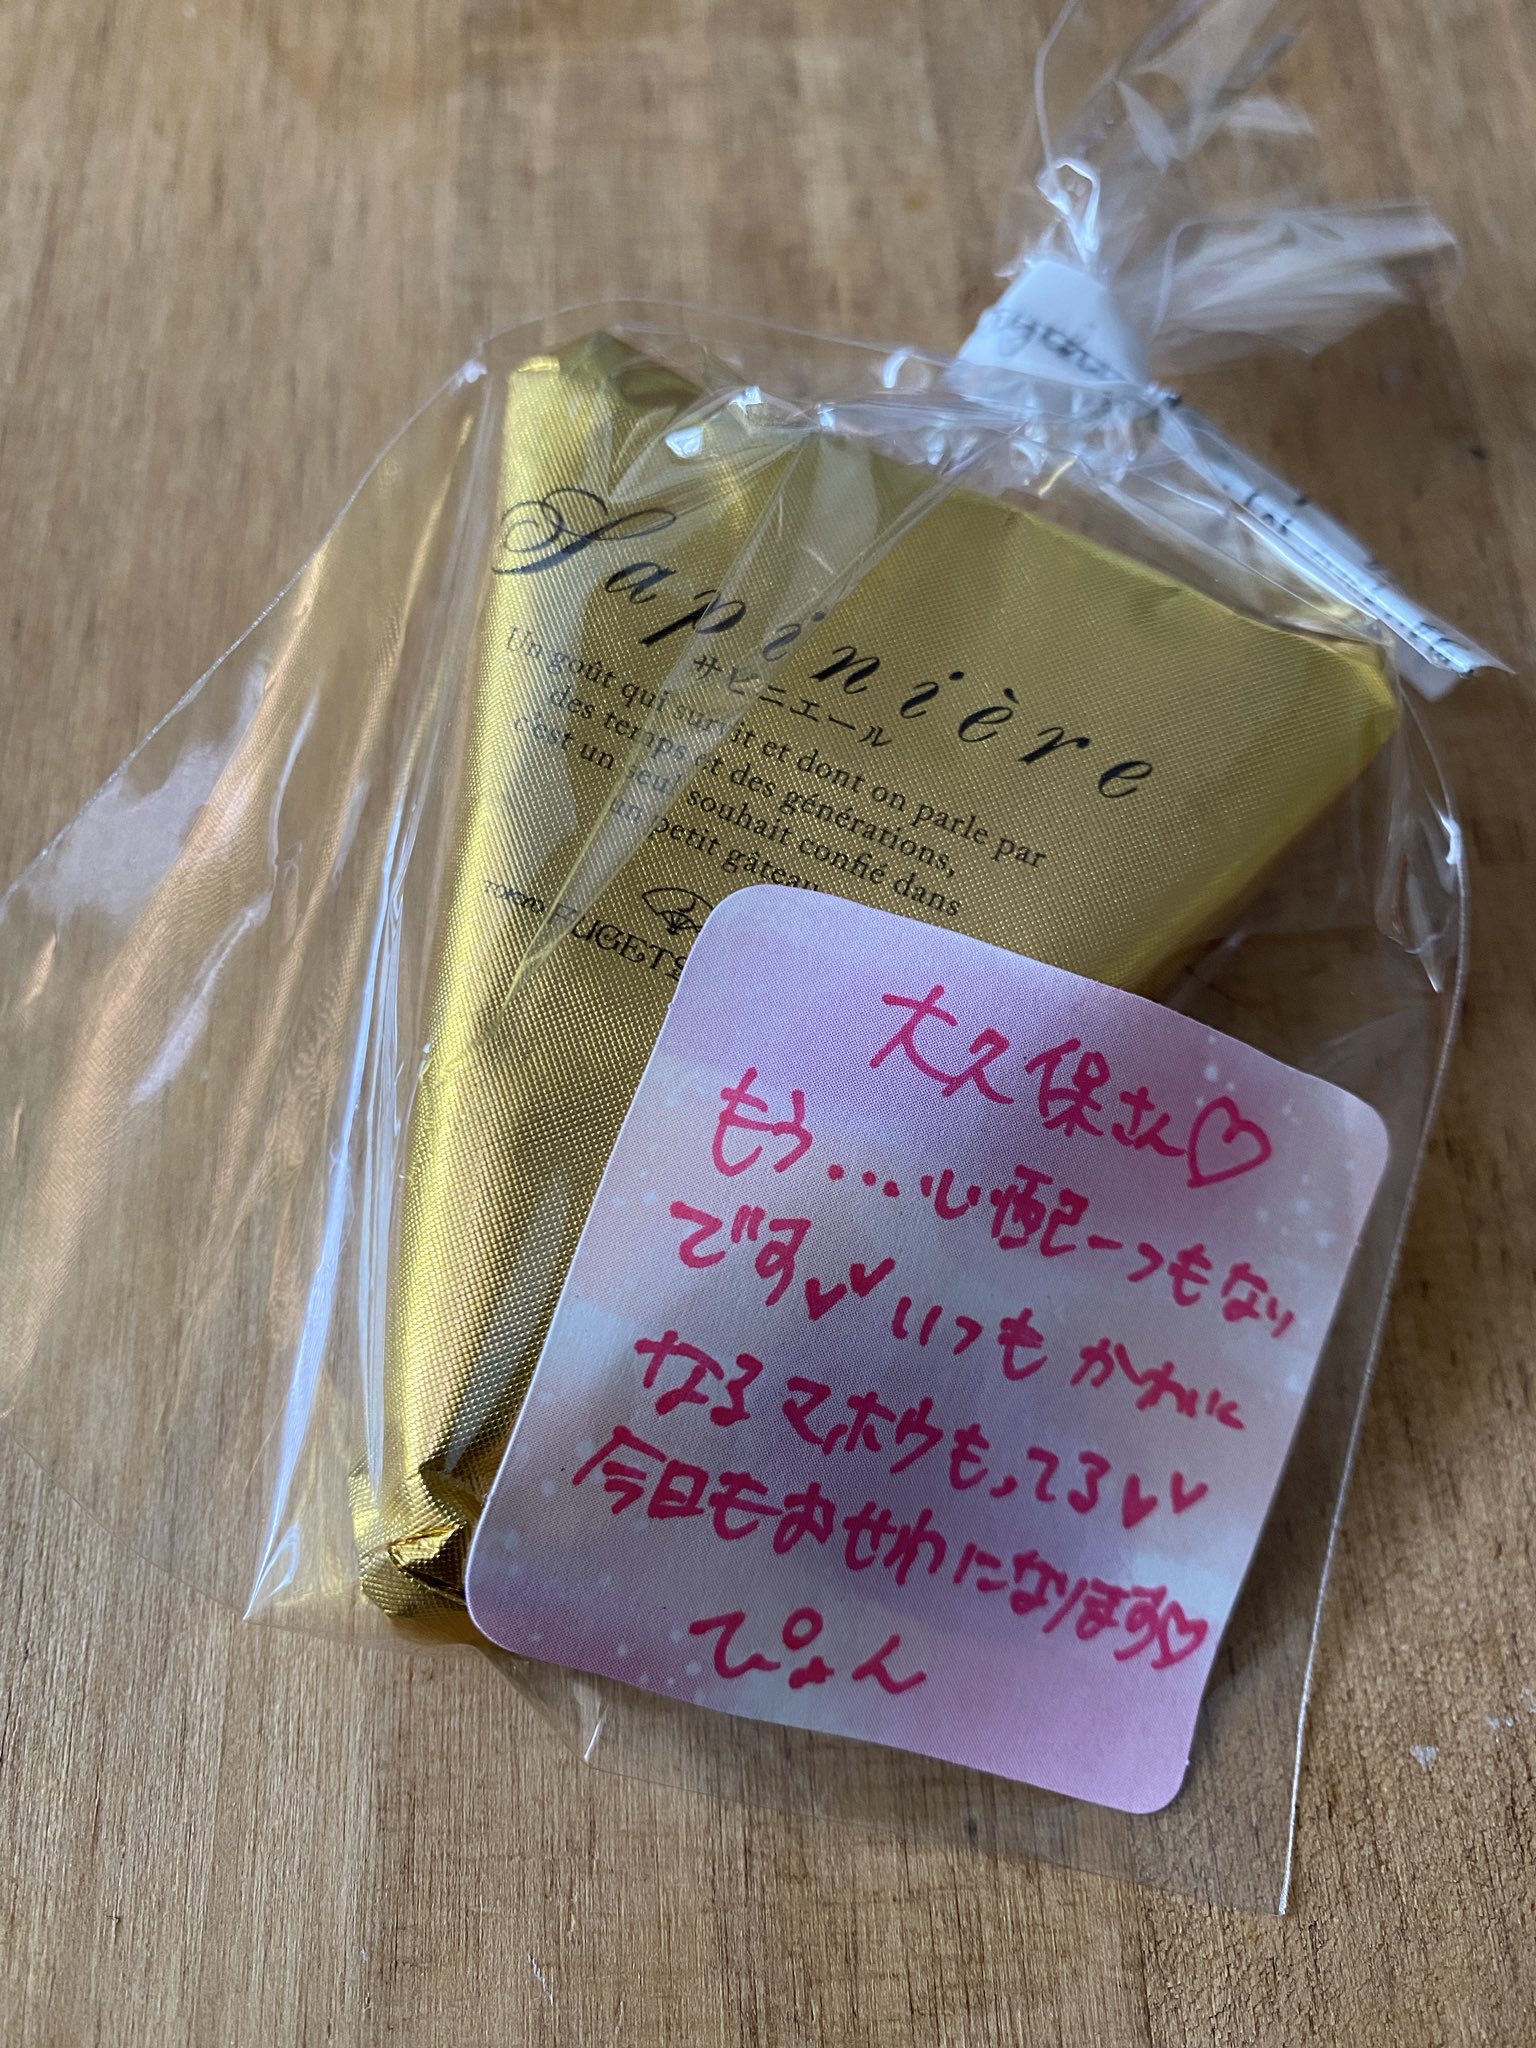 Sapinière
サピニエール
Un goût qui survit et dont on parle par
des temps et des générations,
c'est un seul souhait confié dans
un petit gâteau
TOKYO FUGETS
大久保さん♡
もう...心配一つもない
です♥♥いつもかわいく
なるマホウもってる♥♥
今日もおせわになります♡
ぴょん